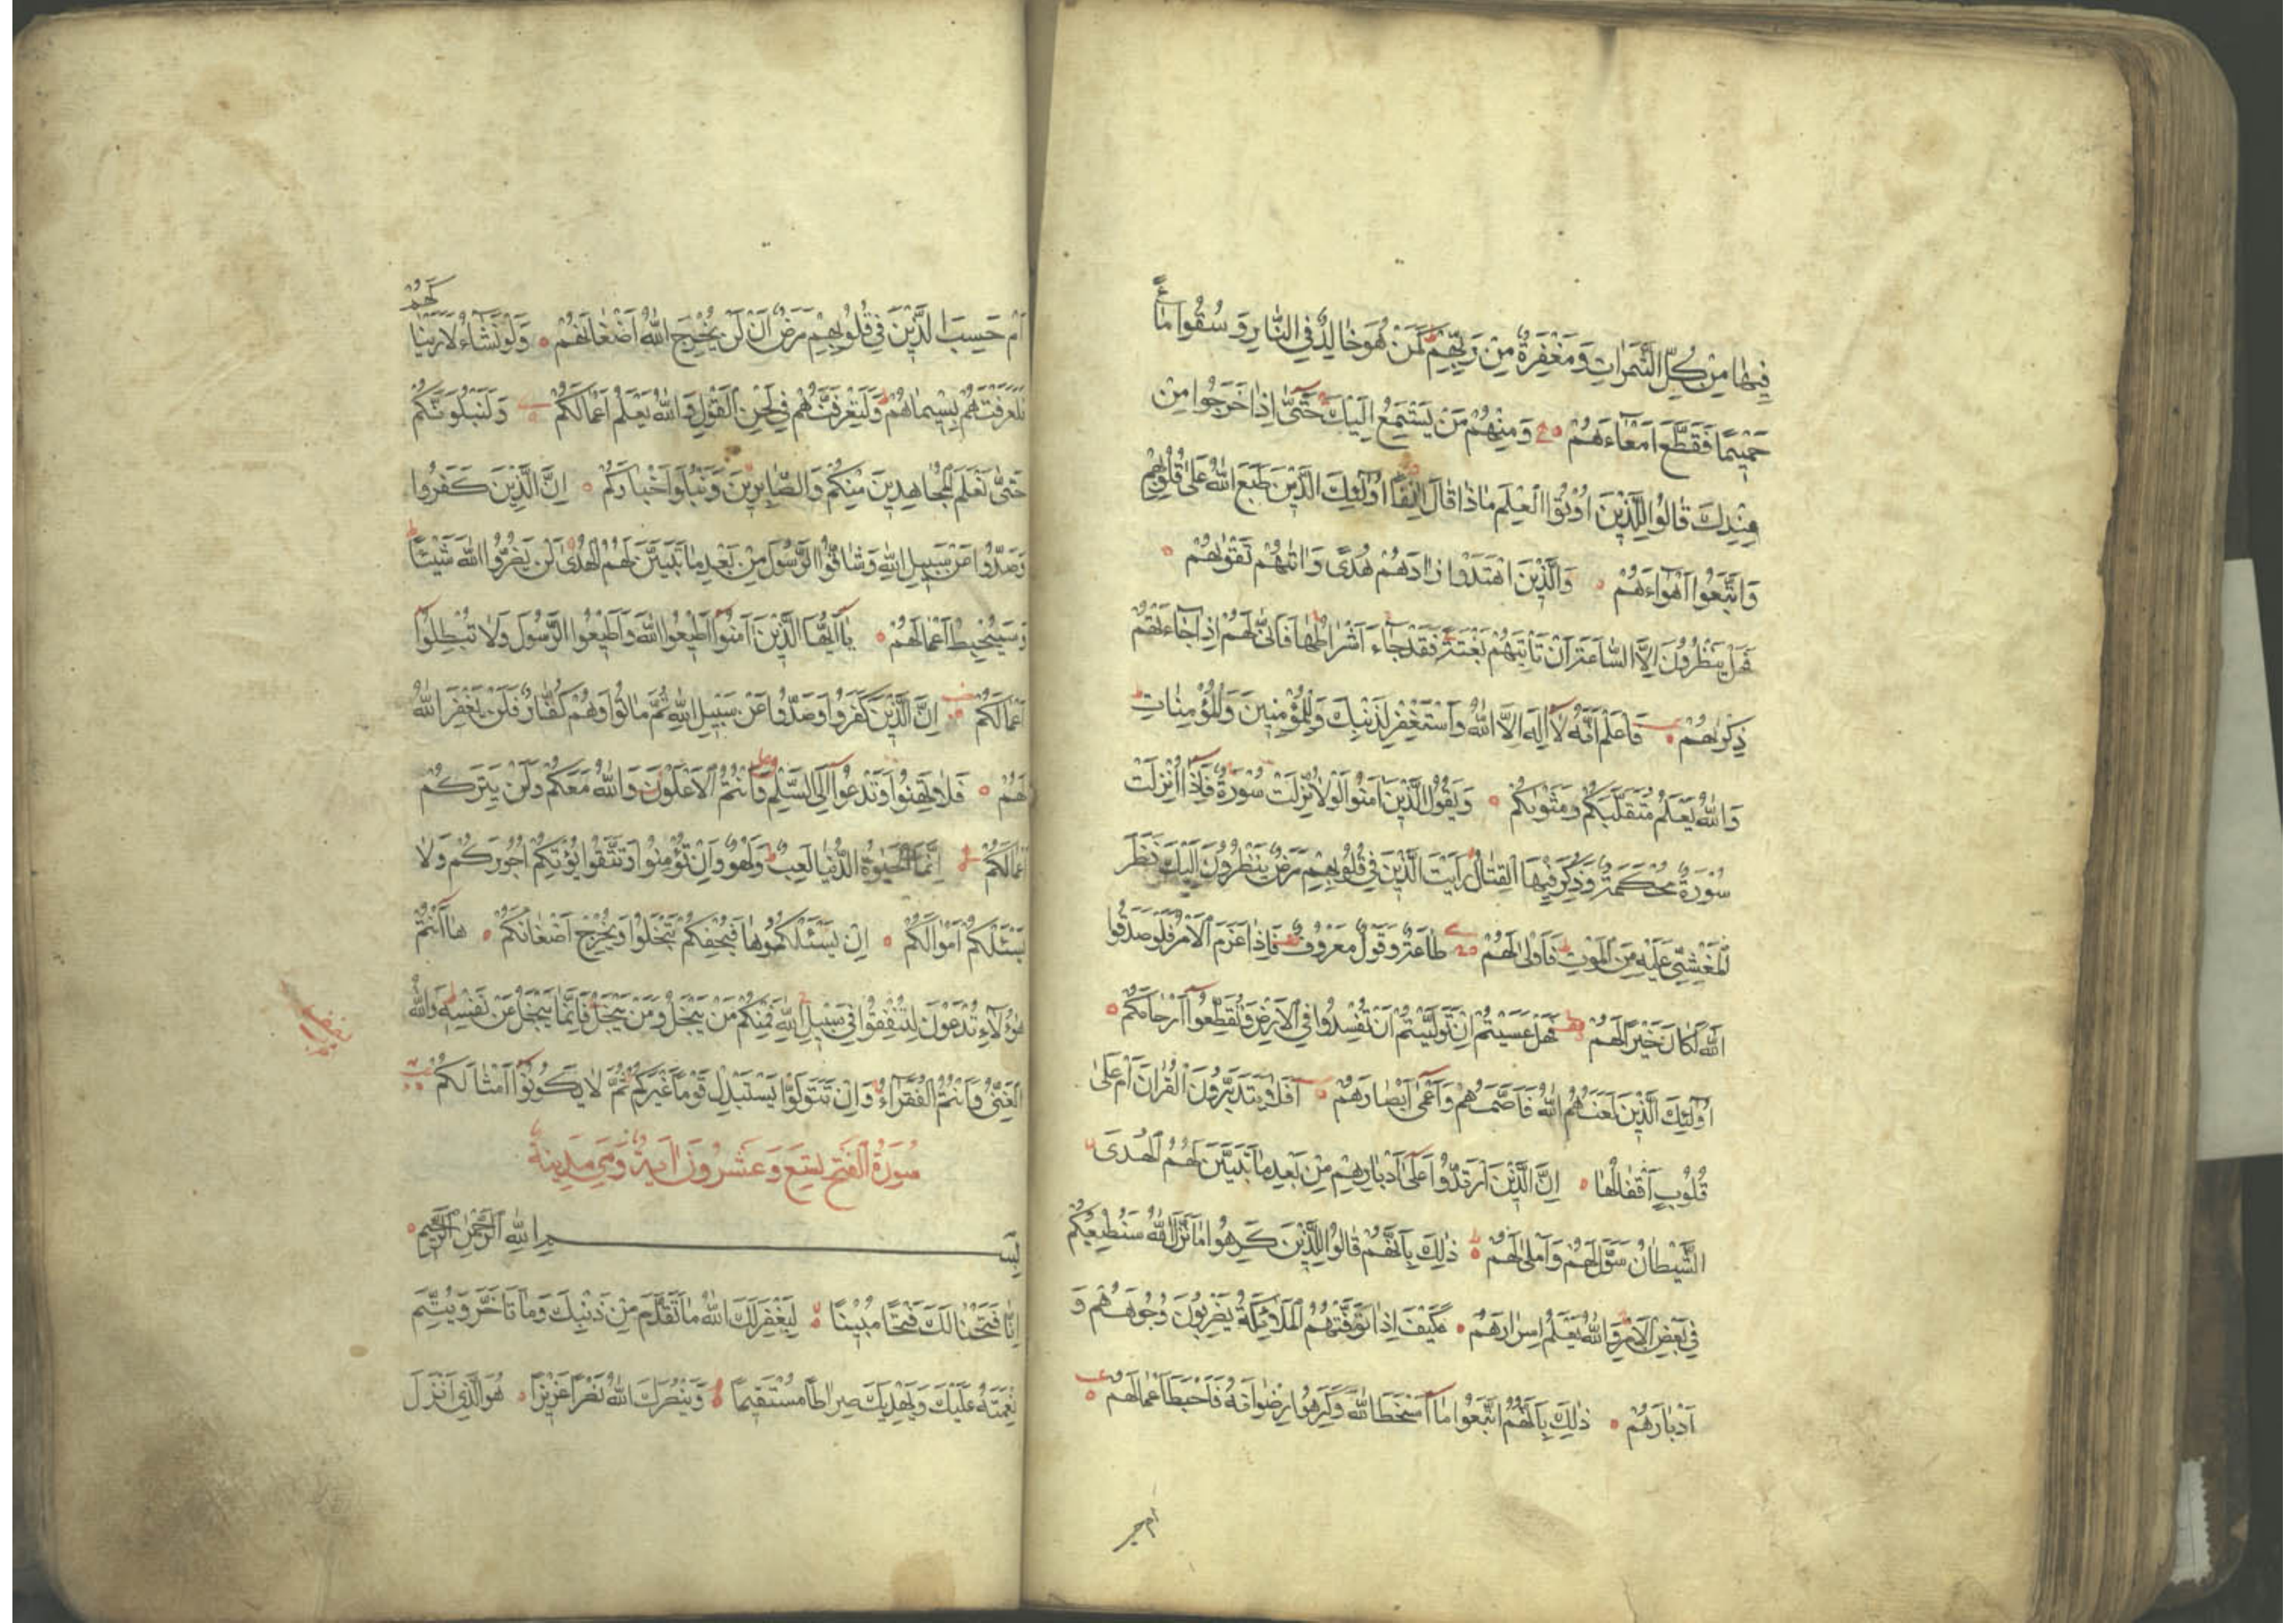 فِيهَا مِنْ كُلِّ الثَّمَرَاتِ وَمَغْفِرَةٌ مِنْ رَبِّهِمْ كَمَنْ هُوَ خَالِدٌ فِي النَّارِ وَسُقُوا مَاءً
حَمِيمًا فَقَطَّعَ اَمْعَاءَهُمْ وَمِنْهُمْ مَنْ يَسْتَمِعُ اِلَيْكَ حَتَّى اِذَا خَرَجُوا مِنْ
عِنْدِكَ قَالُوا لِلَّذِينَ اُوتُوا الْعِلْمَ مَاذَا قَالَ اٰنِفًا اُولٰئِكَ الَّذِينَ طَبَعَ اللهُ عَلَى قُلُوبِهِمْ
وَاتَّبَعُوا اَهْوَاءَهُمْ وَالَّذِينَ اهْتَدَوْا زَادَهُمْ هُدًى وَاٰتٰهُمْ تَقْوٰهُمْ
فَهَلْ يَنْظُرُونَ اِلَّا السَّاعَةَ اَنْ تَأْتِيَهُمْ بَغْتَةً فَقَدْ جَاءَ اَشْرَاطُهَا فَاَنَّى لَهُمْ اِذَا جَاءَتْهُمْ
ذِكْرٰهُمْ فَاعْلَمْ اَنَّهُ لَا اِلٰهَ اِلَّا اللهُ وَاسْتَغْفِرْ لِذَنْبِكَ وَلِلْمُؤْمِنِينَ وَالْمُؤْمِنَاتِ
وَاللهُ يَعْلَمُ مُتَقَلَّبَكُمْ وَمَثْوٰكُمْ وَيَقُولُ الَّذِينَ اٰمَنُوا لَوْلَا نُزِّلَتْ سُورَةٌ فَاِذَا اُنْزِلَتْ
سُورَةٌ مُحْكَمَةٌ وَذُكِرَ فِيهَا الْقِتَالُ رَاَيْتَ الَّذِينَ فِي قُلُوبِهِمْ مَرَضٌ يَنْظُرُونَ اِلَيْكَ نَظَرَ
الْمَغْشِيِّ عَلَيْهِ مِنَ الْمَوْتِ فَاَوْلَى لَهُمْ طَاعَةٌ وَقَوْلٌ مَعْرُوفٌ فَاِذَا عَزَمَ الْاَمْرُ فَلَوْ صَدَقُوا
اللهَ لَكَانَ خَيْرًا لَهُمْ فَهَلْ عَسَيْتُمْ اِنْ تَوَلَّيْتُمْ اَنْ تُفْسِدُوا فِي الْاَرْضِ وَتُقَطِّعُوا اَرْحَامَكُمْ
اُولٰئِكَ الَّذِينَ لَعَنَهُمُ اللهُ فَاَصَمَّهُمْ وَاَعْمَى اَبْصَارَهُمْ اَفَلَا يَتَدَبَّرُونَ الْقُرْاٰنَ اَمْ عَلَى
قُلُوبٍ اَقْفَالُهَا اِنَّ الَّذِينَ ارْتَدُّوا عَلَى اَدْبَارِهِمْ مِنْ بَعْدِ مَا تَبَيَّنَ لَهُمُ الْهُدَى
الشَّيْطَانُ سَوَّلَ لَهُمْ وَاَمْلَى لَهُمْ ذٰلِكَ بِاَنَّهُمْ قَالُوا لِلَّذِينَ كَرِهُوا مَا نَزَّلَ اللهُ سَنُطِيعُكُمْ
فِي بَعْضِ الْاَمْرِ وَاللهُ يَعْلَمُ اِسْرَارَهُمْ فَكَيْفَ اِذَا تَوَفَّتْهُمُ الْمَلَائِكَةُ يَضْرِبُونَ وُجُوهَهُمْ وَ
اَدْبَارَهُمْ ذٰلِكَ بِاَنَّهُمُ اتَّبَعُوا مَا اَسْخَطَ اللهَ وَكَرِهُوا رِضْوَانَهُ فَاَحْبَطَ اَعْمَالَهُمْ
اَمْ حَسِبَ الَّذِينَ فِي قُلُوبِهِمْ مَرَضٌ اَنْ لَنْ يُخْرِجَ اللهُ اَضْغَانَهُمْ وَلَوْ نَشَاءُ لَاَرَيْنَا
كَهُمْ
فَلَعَرَفْتَهُمْ بِسِيمَاهُمْ وَلَتَعْرِفَنَّهُمْ فِي لَحْنِ الْقَوْلِ وَاللهُ يَعْلَمُ اَعْمَالَكُمْ وَلَنَبْلُوَنَّكُمْ
حَتَّى نَعْلَمَ الْمُجَاهِدِينَ مِنْكُمْ وَالصَّابِرِينَ وَنَبْلُوَا اَخْبَارَكُمْ اِنَّ الَّذِينَ كَفَرُوا
وَصَدُّوا عَنْ سَبِيلِ اللهِ وَشَاقُّوا الرَّسُولَ مِنْ بَعْدِ مَا تَبَيَّنَ لَهُمُ الْهُدَى لَنْ يَضُرُّوا اللهَ شَيْئًا
وَسَيُحْبِطُ اَعْمَالَهُمْ يَا اَيُّهَا الَّذِينَ اٰمَنُوا اَطِيعُوا اللهَ وَاَطِيعُوا الرَّسُولَ وَلَا تُبْطِلُوا
اَعْمَالَكُمْ اِنَّ الَّذِينَ كَفَرُوا وَصَدُّوا عَنْ سَبِيلِ اللهِ ثُمَّ مَاتُوا وَهُمْ كُفَّارٌ فَلَنْ يَغْفِرَ اللهُ
لَهُمْ فَلَا تَهِنُوا وَتَدْعُوا اِلَى السَّلْمِ وَاَنْتُمُ الْاَعْلَوْنَ وَاللهُ مَعَكُمْ وَلَنْ يَتِرَكُمْ
اَعْمَالَكُمْ اِنَّمَا الْحَيٰوةُ الدُّنْيَا لَعِبٌ وَلَهْوٌ وَاِنْ تُؤْمِنُوا وَتَتَّقُوا يُؤْتِكُمْ اُجُورَكُمْ وَلَا
يَسْئَلْكُمْ اَمْوَالَكُمْ اِنْ يَسْئَلْكُمُوهَا فَيُحْفِكُمْ تَبْخَلُوا وَيُخْرِجْ اَضْغَانَكُمْ هَا اَنْتُمْ
هٰؤُلَاءِ تُدْعَوْنَ لِتُنْفِقُوا فِي سَبِيلِ اللهِ فَمِنْكُمْ مَنْ يَبْخَلُ وَمَنْ يَبْخَلْ فَاِنَّمَا يَبْخَلُ عَنْ نَفْسِهِ وَاللهُ
الْغَنِيُّ وَاَنْتُمُ الْفُقَرَاءُ وَاِنْ تَتَوَلَّوْا يَسْتَبْدِلْ قَوْمًا غَيْرَكُمْ ثُمَّ لَا يَكُونُوا اَمْثَالَكُمْ
سُورَةُ الْفَتْحِ تِسْعَ وَعَشْرُونَ اٰيَةً وَهِيَ مَدِينَةٌ
بِسْمِ اللهِ الرَّحْمٰنِ الرَّحِيمِ
اِنَّا فَتَحْنَا لَكَ فَتْحًا مُبِينًا لِيَغْفِرَ لَكَ اللهُ مَا تَقَدَّمَ مِنْ ذَنْبِكَ وَمَا تَاَخَّرَ وَيُتِمَّ
نِعْمَتَهُ عَلَيْكَ وَيَهْدِيَكَ صِرَاطًا مُسْتَقِيمًا وَيَنْصُرَكَ اللهُ نَصْرًا عَزِيزًا هُوَ الَّذِي اَنْزَلَ